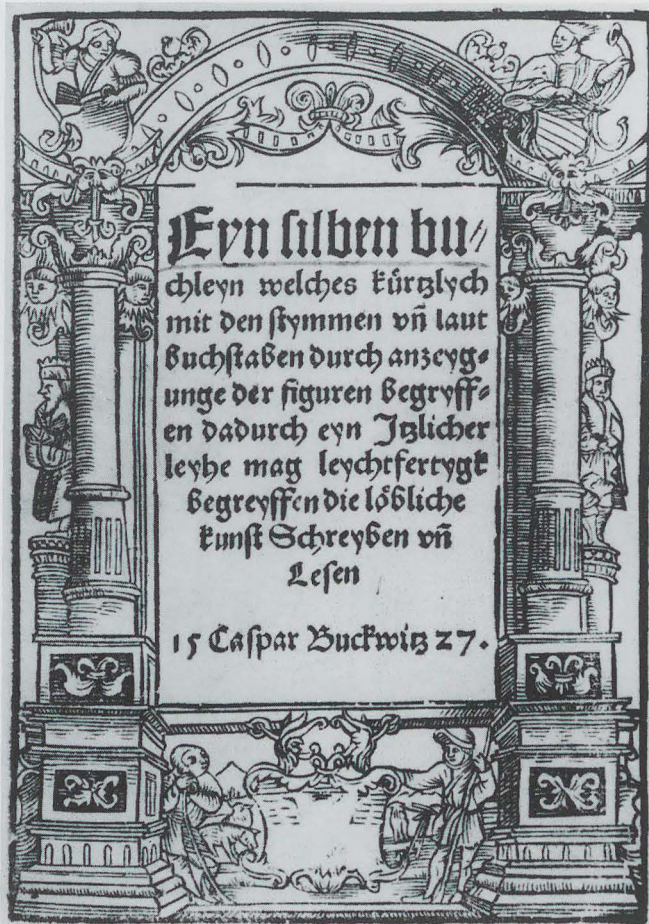 Eyn silben bu⸗
chleyn welches kürtzlych
mit den stymmen vñ laut
Buchstaben durch anzeyg⸗
unge der figuren begryff⸗
en dadurch eyn Itzlicher
leyhe mag leychtfertygk
begreyffen die löbliche
kunst Schreyben vñ
Lesen
15 Caspar Buckwitz 27.